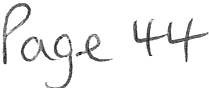 Page 44